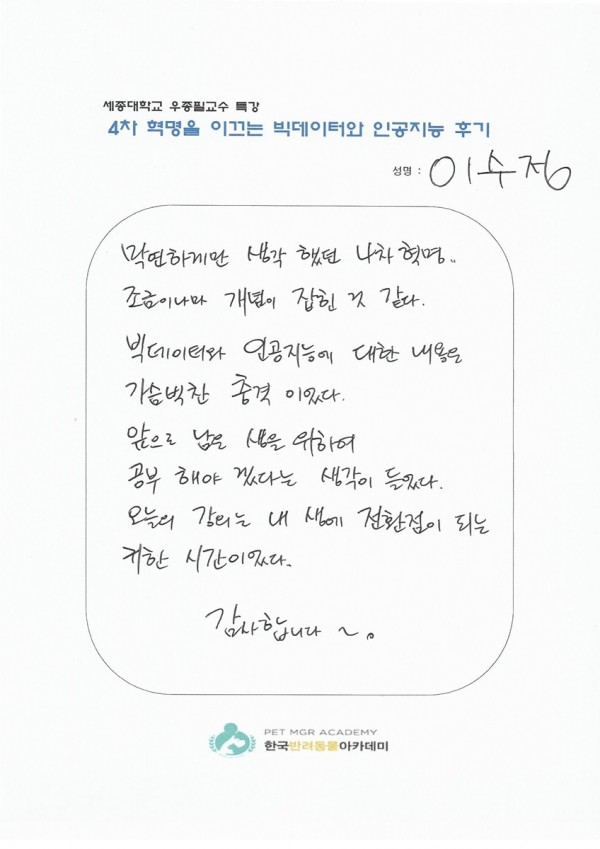 세종대학교 우종필교수 특강
4차 혁명을 이끄는 빅데이터와 인공지능 후기
성명 : 이수정
막연하게만 생각 했던 4차 혁명..
조금이나마 개념이 잡힌 것 같다.
빅데이터와 인공지능에 대한 내용은
가슴벅찬 충격 이었다.
앞으로 남은 생을 위하여
공부 해야 겠다는 생각이 들었다.
오늘의 강의는 내 생에 전환점이 되는
귀한 시간이었다.
감사합니다 ~.
PET MGR ACADEMY
한국반려동물아카데미